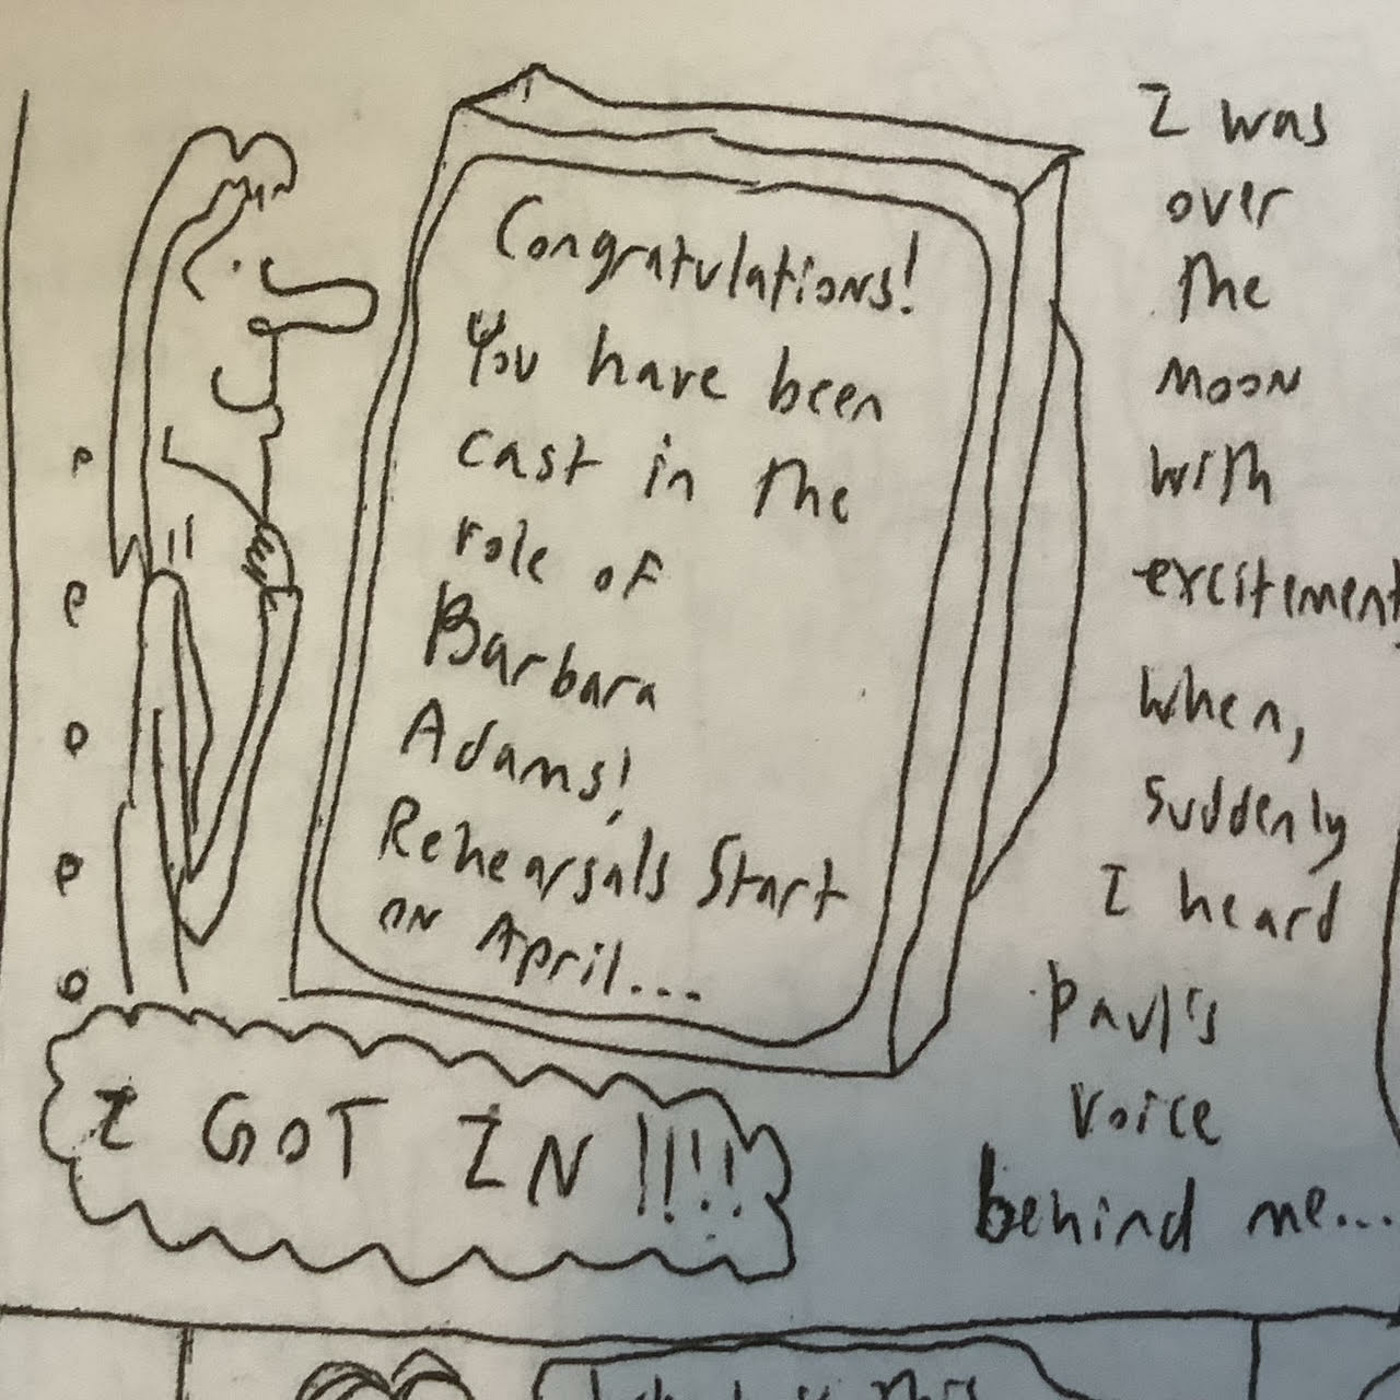 Congratulations!
You have been
cast in the
role of
Barbara
Adams!
Rehearsals Start
on April...
I GOT IN !!!!
I was
over
the
moon
with
excitement
when,
suddenly
I heard
Paul's
voice
behind me...